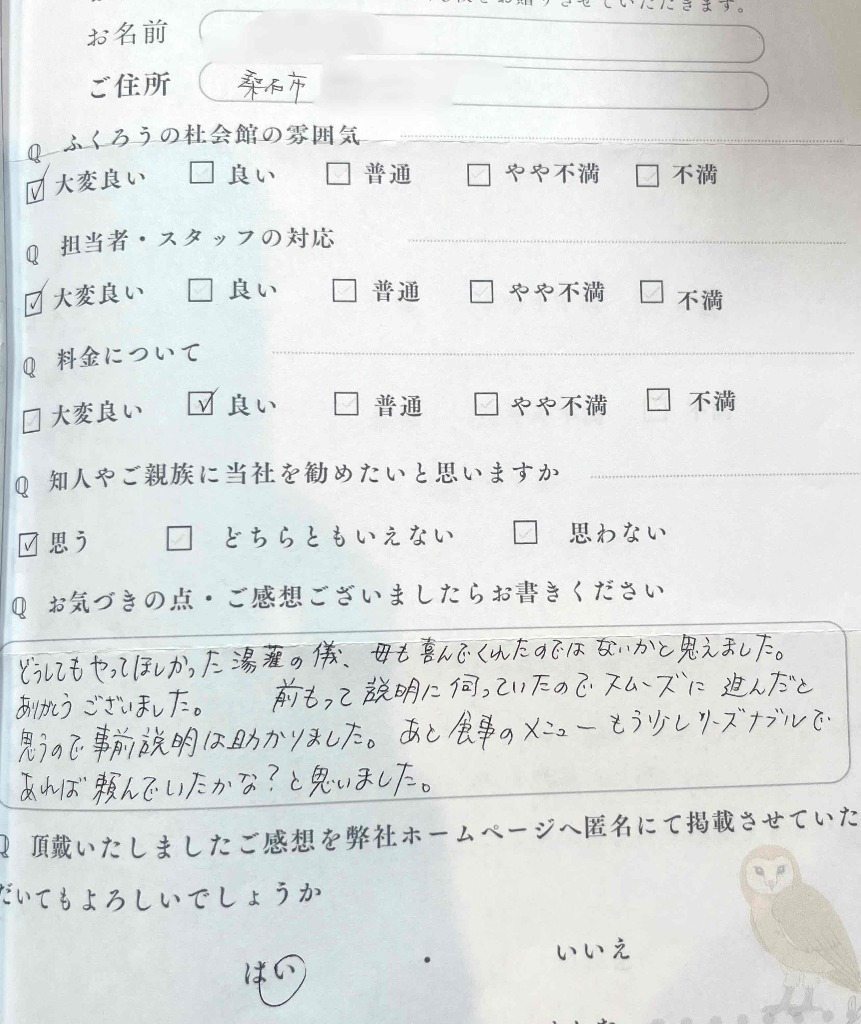 お名前
ご住所 桑名市
Q ふくろうの杜会館の雰囲気
大変良い 良い 普通 やや不満 不満
Q 担当者・スタッフの対応
大変良い 良い 普通 やや不満 不満
Q 料金について
大変良い 良い 普通 やや不満 不満
Q 知人やご親族に当社を勧めたいと思いますか
思う どちらともいえない 思わない
Q お気づきの点・ご感想ございましたらお書きください
どうしてもやってほしかった湯灌の儀、母も喜んでくれたのではないかと思えました。
ありがとうございました。 前もって説明に伺っていたのでスムーズに進んだと
思うので事前説明は助かりました。あと食事のメニューもう少しリーズナブルで
あれば頼んでいたかな?と思いました。
Q 頂戴いたしましたご感想を弊社ホームページへ匿名にて掲載させていた
だいてもよろしいでしょうか
はい ・ いいえ